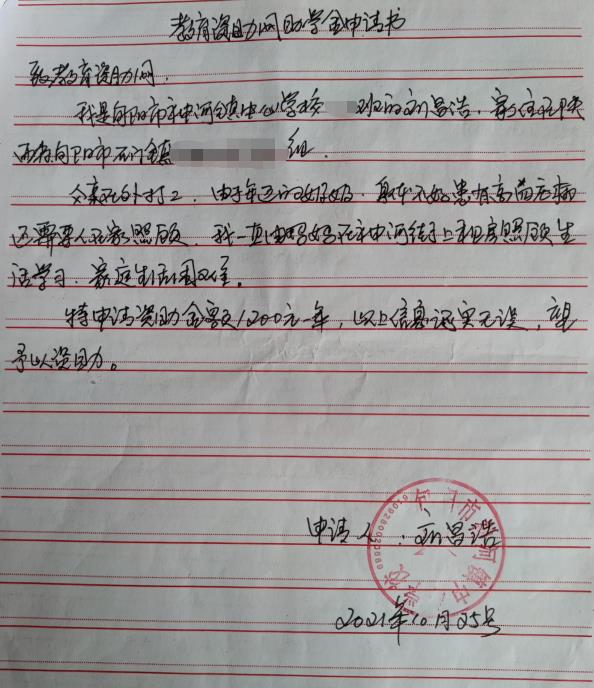 教育资助网助学金申请书
致教育资助网：
我是旬阳市赤河镇中心学校 班的刘昌浩，家住在陕
西省旬阳市石门镇 组．
父亲在外打工，由于年迈的奶奶，身体不好患有高血压病
还需要人在家照顾，我一直由妈妈在 河街上租房照顾生
活学习．家庭生活困难．
特申请资助金额1200元一年，以上信息证实无误，望
予以资助。
申请人：刘昌浩
2021年10月25号